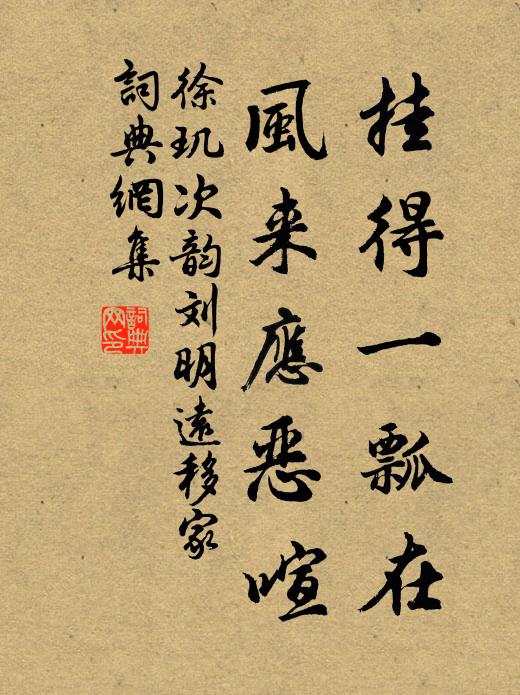 挂得一瓢在
風来應恶喧
徐玑次韵刘明遠移家
詞典網集
詞典網印